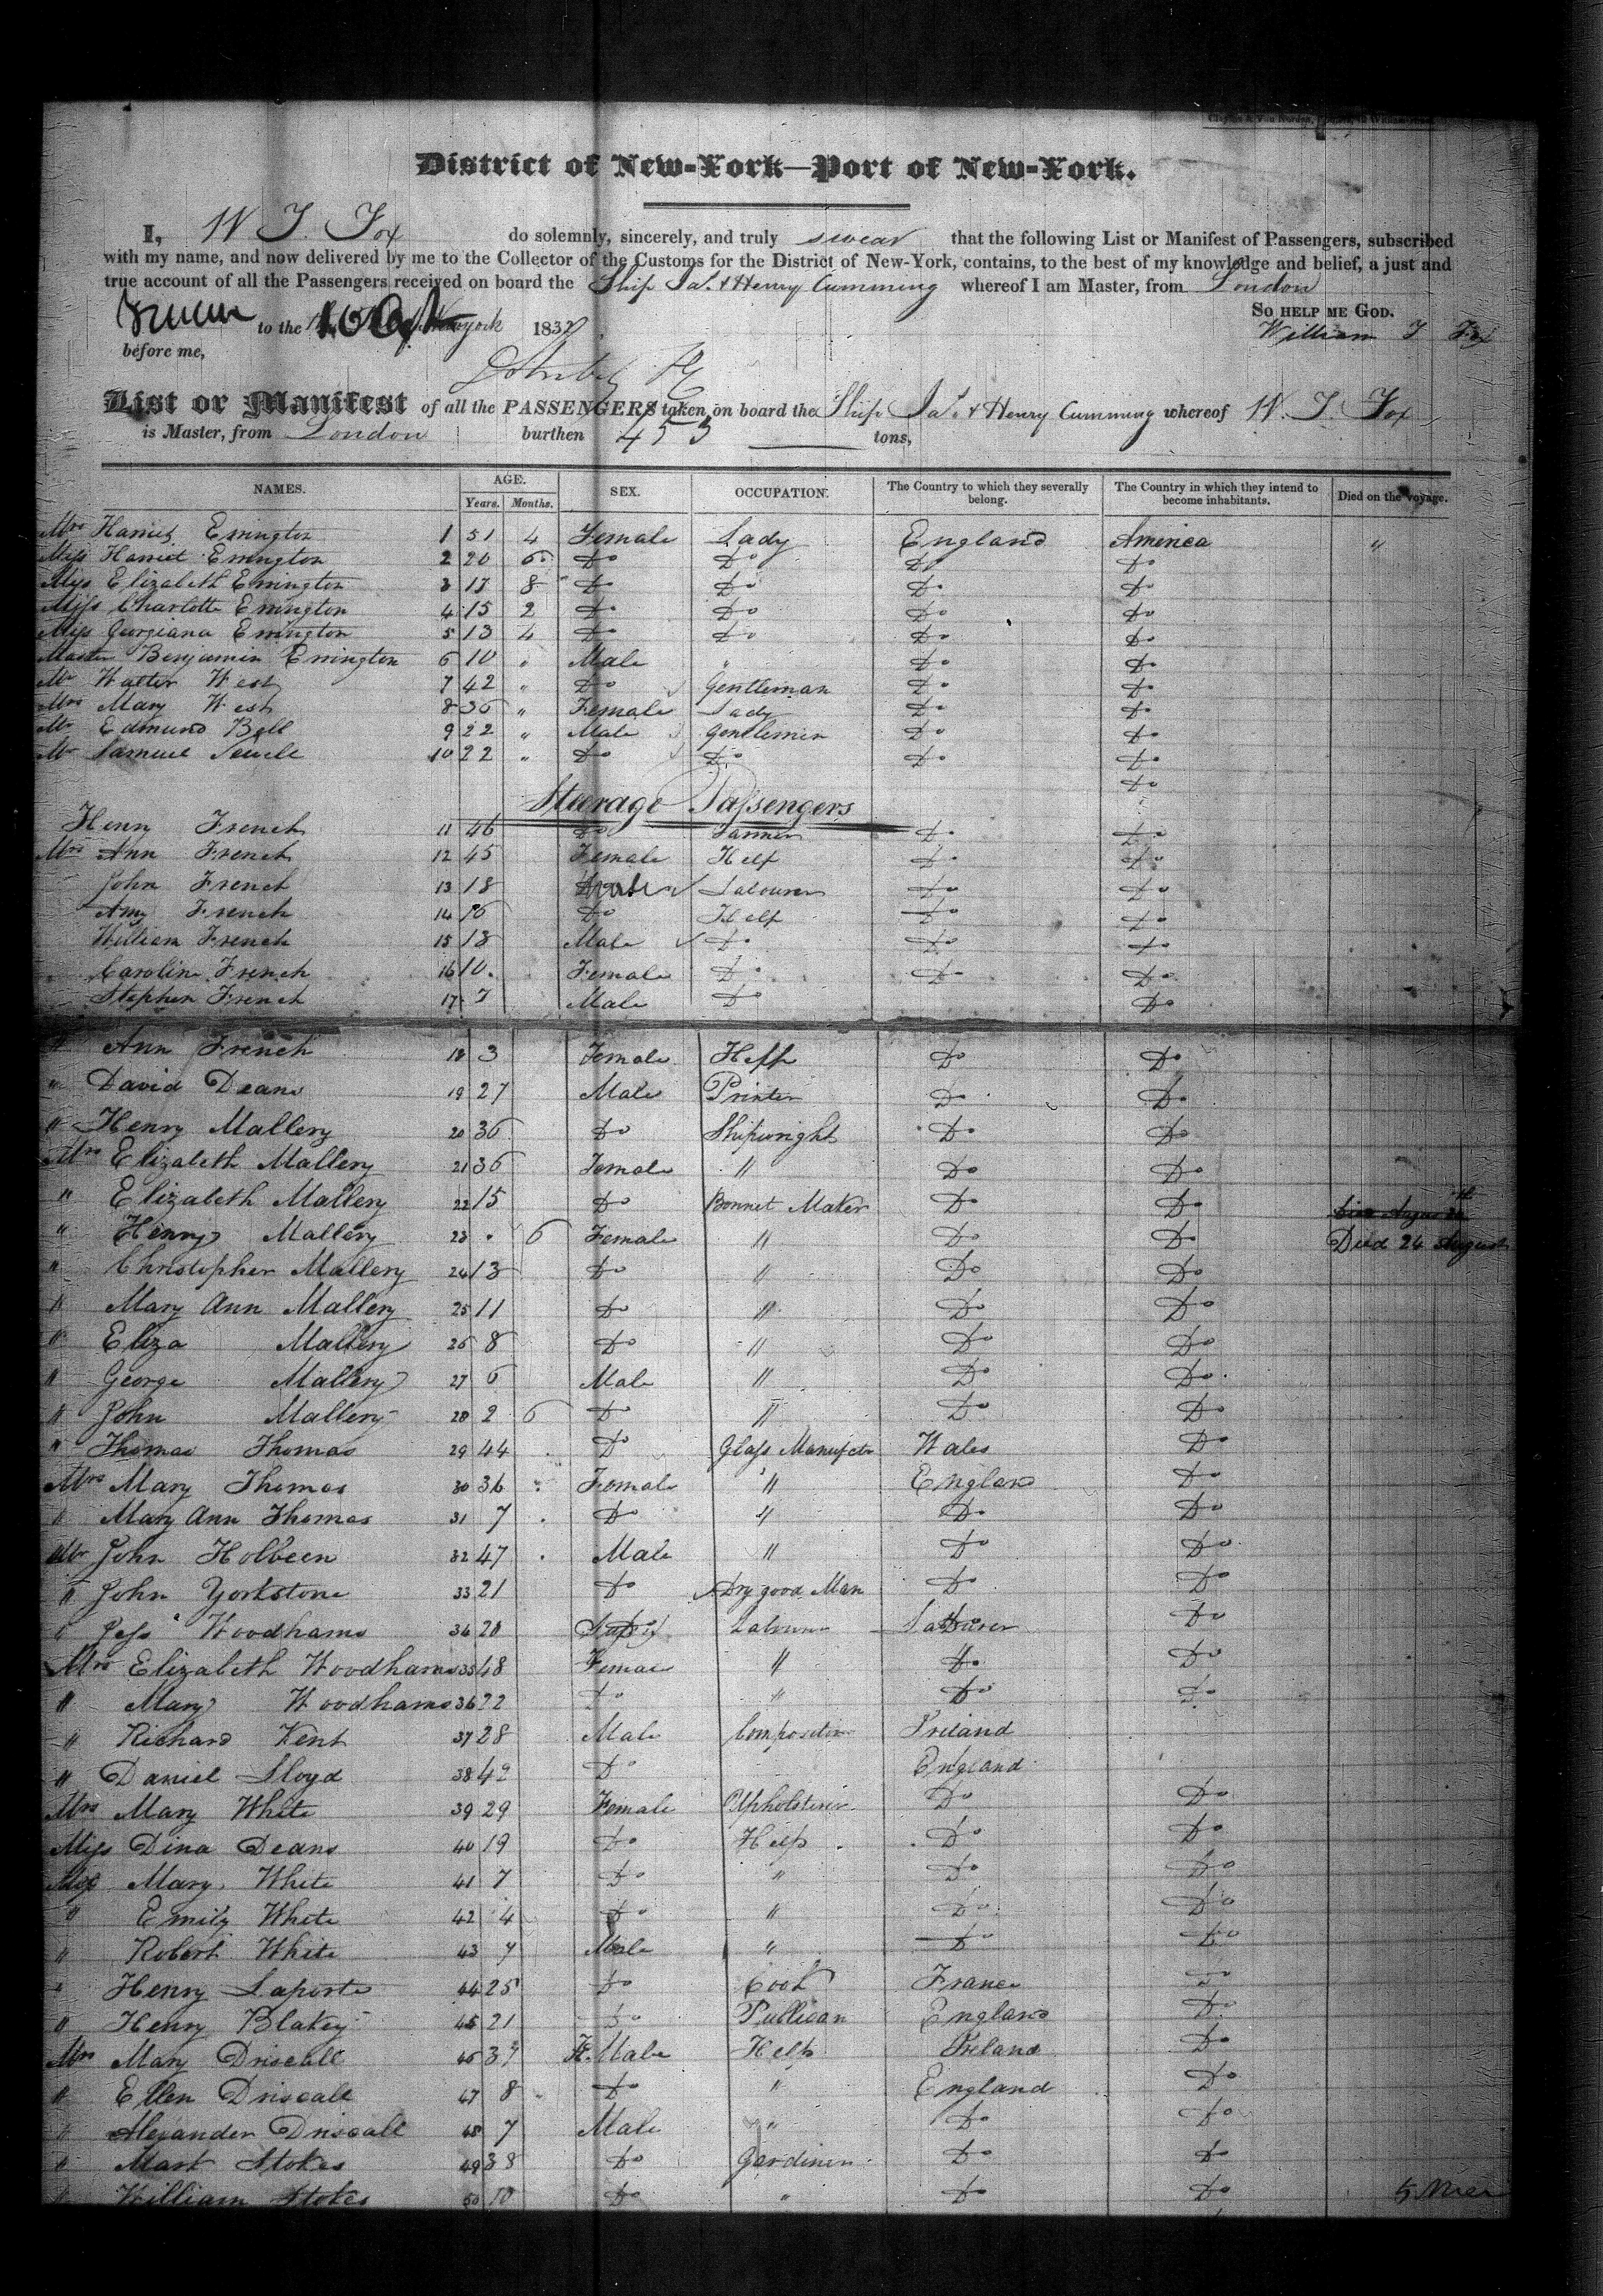 District of New-York—Port of New-York.
I, W J. Fox do solemnly, sincerely, and truly swear that the following List or Manifest of Passengers, subscribed
with my name, and now delivered by me to the Collector of the Customs for the District of New-York, contains, to the best of my knowledge and belief, a just and
true account of all the Passengers received on board the Ship Jas. & Henry Cumming whereof I am Master, from London
So help me God.
to the 183
William J Fox
before me,
List or Manifest of all the PASSENGERS taken on board the Ship Jas. & Henry Cumming whereof W. J. Fox
is Master, from London burthen 453 tons,
NAMES. AGE. Years. Months. SEX. OCCUPATION. The Country to which they severally belong. The Country in which they intend to become inhabitants. Died on the voyage.
Mrs Harriet Errington 1 51 4 Female Lady England America "
Miss Harriet Errington 2 20 6 Do Do Do Do
Miss Elizabeth Errington 3 17 8 Do Do Do Do
Miss Charlotte Errington 4 15 2 Do Do Do Do
Miss Georgiana Errington 5 13 4 Do Do Do Do
Master Benjamin Errington 6 10 " Male " Do Do
Mr Walter West 7 42 " Do Gentleman Do Do
Mrs Mary West 8 36 " Female Lady Do Do
Mr Edmund Bell 9 22 " Male Gentlemen Do Do
Mr Samuel Sewell 10 22 " Do Do Do Do
Do
Steerage Passengers
Henry French 11 46 Do Farmer Do Do
Mrs Ann French 12 45 Female Help Do Do
John French 13 18 Male Labourer Do Do
Amy French 14 16 Do Help Do Do
William French 15 13 Male Do Do Do
Caroline French 16 10 Female Do Do Do
Stephen French 17 7 Male Do Do
" Ann French 18 3 Female Help Do Do
" David Deans 19 27 Male Printer Do Do
" Henry Mallery 20 36 Do Shipwright Do Do
Mrs Elizabeth Mallery 21 36 Female " Do Do
" Elizabeth Mallery 22 15 Do Bonnet Maker Do Do
" Henry Mallery 23 " 6 Female " Do Do Died 24 August
" Christopher Mallery 24 13 Do " Do Do
" Mary Ann Mallery 25 11 Do " Do Do
" Eliza Mallery 26 8 Do " Do Do
" George Mallery 27 6 Male " Do Do
" John Mallery 28 2 6 Do " Do Do
" Thomas Thomas 29 44 Do Glass Manufctr Wales Do
Mrs Mary Thomas 30 36 Female " England Do
" Mary Ann Thomas 31 7 Do " Do Do
Mr John Holbeen 32 47 Male " Do Do
" John Yorkstone 33 21 Do Dry good Man Do Do
" Jess Woodhams 34 20 Labourer Do
Mrs Elizabeth Woodhams 35 48 Female " Do Do
" Mary Woodhams 36 22 Do " Do Do
" Richard Kent 37 28 Male Compositor Ireland
" Daniel Lloyd 38 42 Do England
Mrs Mary White 39 29 Female Upholsterer Do Do
Miss Dina Deans 40 19 Do Help Do Do
Miss Mary White 41 7 Do " Do Do
" Emily White 42 4 Do " Do Do
" Robert White 43 7 Male " Do Do
" Henry Laporte 44 25 Do Cook France Do
" Henry Blakey 45 21 Do Publican England Do
Mrs Mary Driscall 46 37 F. Male Help Ireland Do
" Ellen Driscall 47 8 Do " England Do
" Alexander Driscall 48 7 Male " Do Do
" Mark Stokes 49 38 Do Gardiner Do Do
" William Stokes 50 10 Do " Do Do